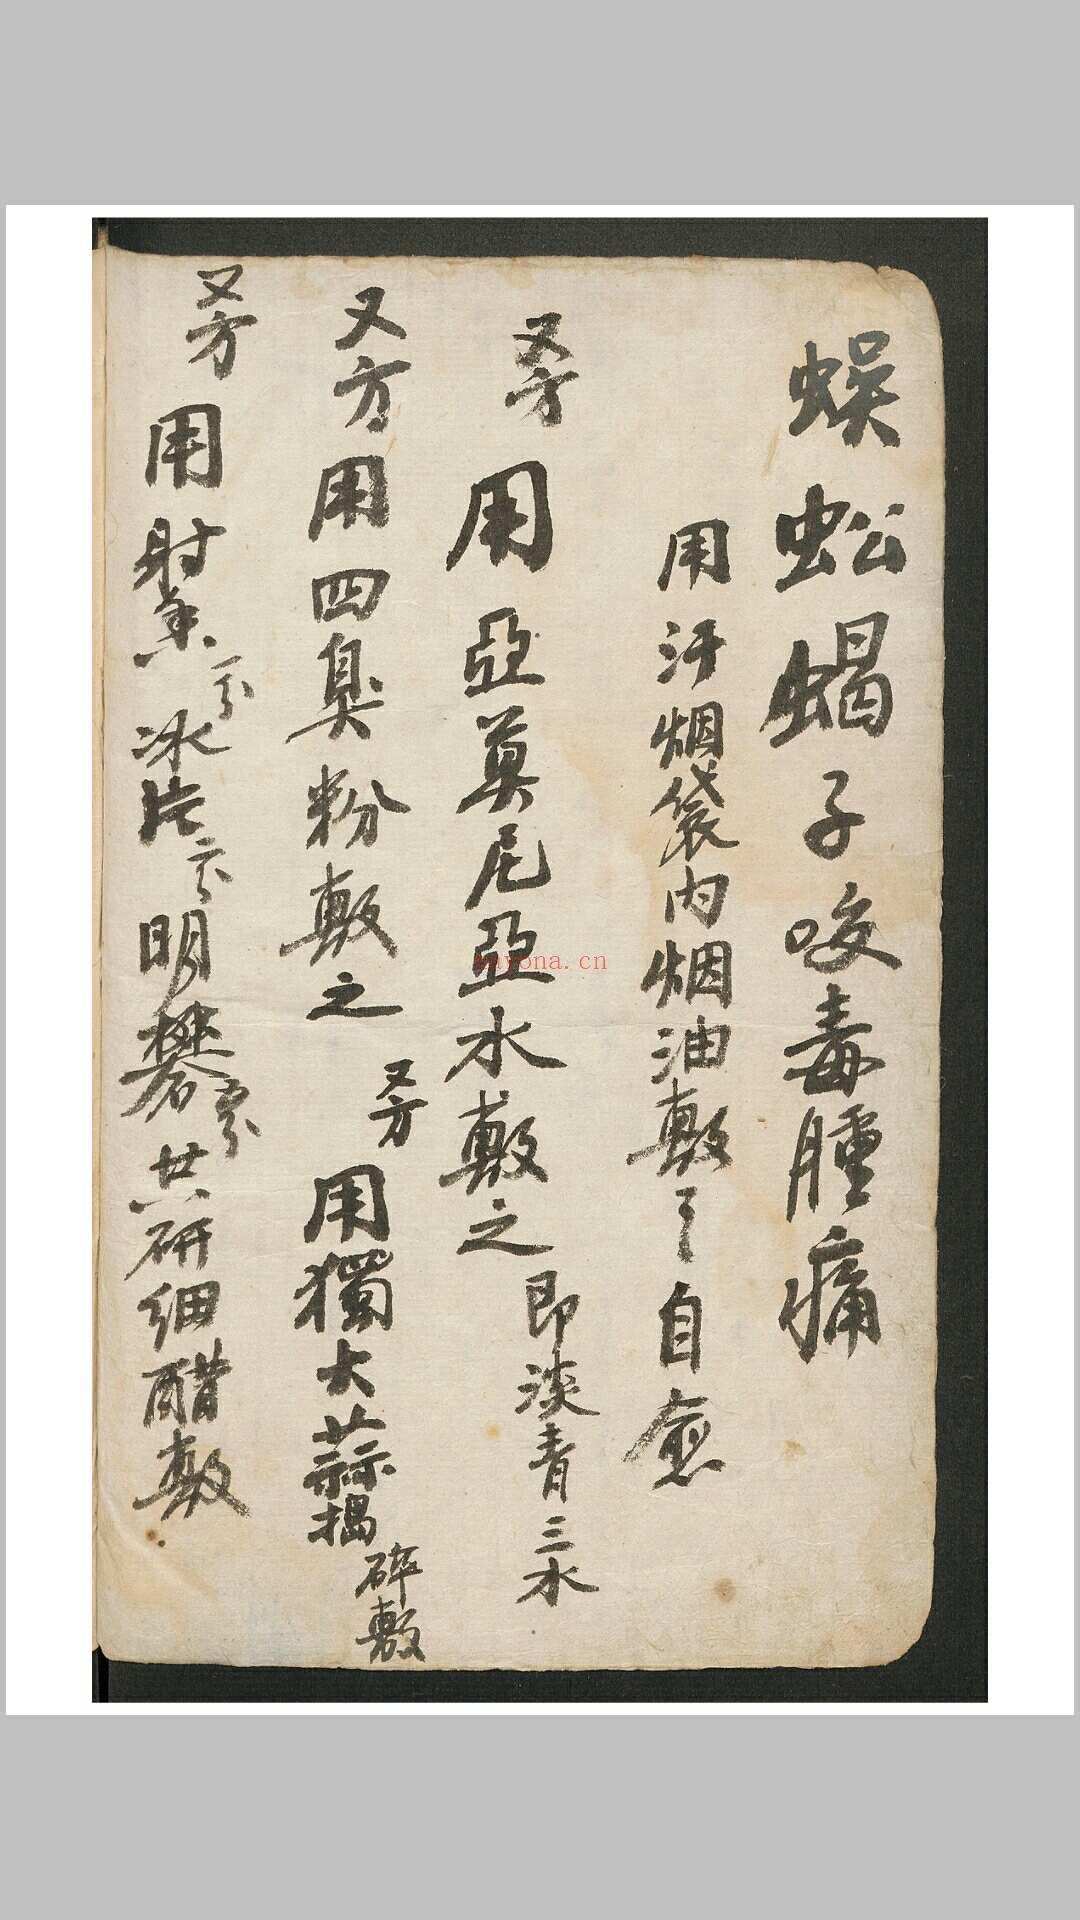 蜈蚣蝎子咬毒腫痛
用汗烟袋内烟油敷之自愈
又方 用亞莫尼亞水敷之 即淡青三水
又方用四臭粉敷之 又方 用獨大蒜搗碎敷
又方 用射香一分 冰片二分 明礬 共研细醋敷
mayona.cn